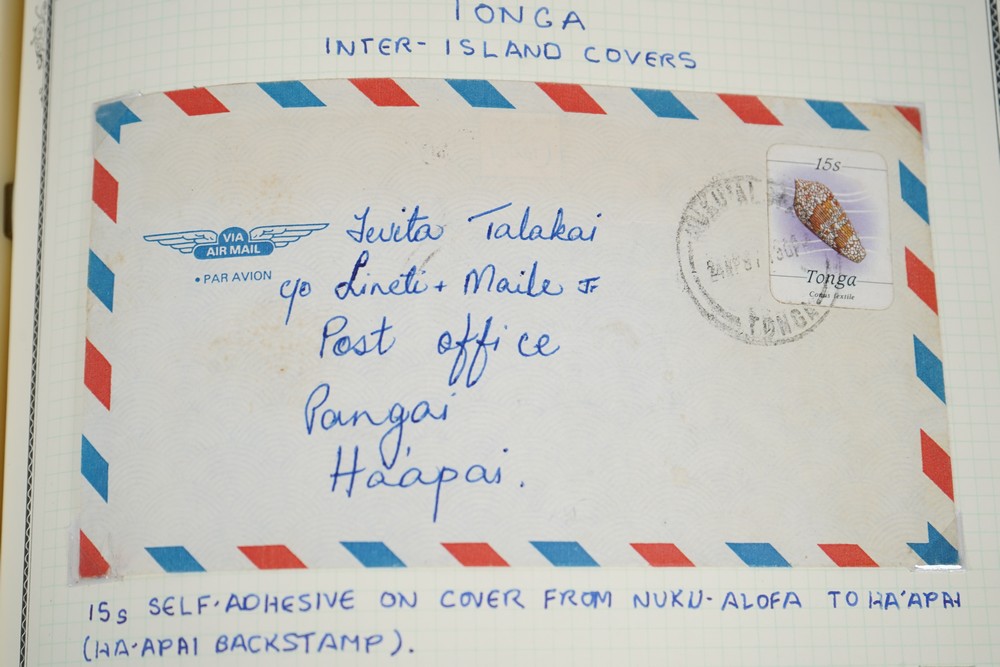 TONGA
INTER-ISLAND COVERS
15s
VIA
AIR MAIL
• PAR AVION
Tevita Talakai
c/o Lineti + Maile Jr
Post office
Pangai
Ha'apai.
NUKU'ALOFA
TONGA
Tonga
Conus textile
15s SELF-ADHESIVE ON COVER FROM NUKU-ALOFA TO HA'APAI
(HA'APAI BACKSTAMP).